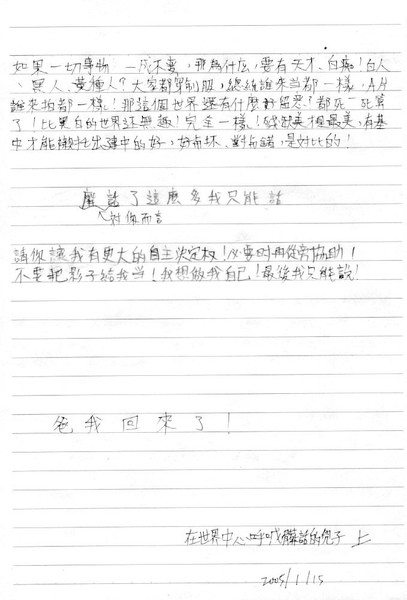 如果一切事物 一成不變,那為什么,要有天才、白痴!白人
、黑人、黃種人?大家都單別服,總統誰來当都一樣,AH
誰來拍都一樣!那這個世界還有什麼好留戀?都死一死算
了!比黑白的世界还無趣!完全一樣!殘缺美才是最美,有基
中才能襯托出建中的好,好与坏、對与錯,是对比的!
廢話了這麼多我只能話
对你而言
請你讓我有更大的自主決定权!必要时再從旁協助!
不要把影子給我当!我想做我自己!最後我只能說!
爸我回來了!
在世界中心呼喊廢話的兒子 上
2005/1/15